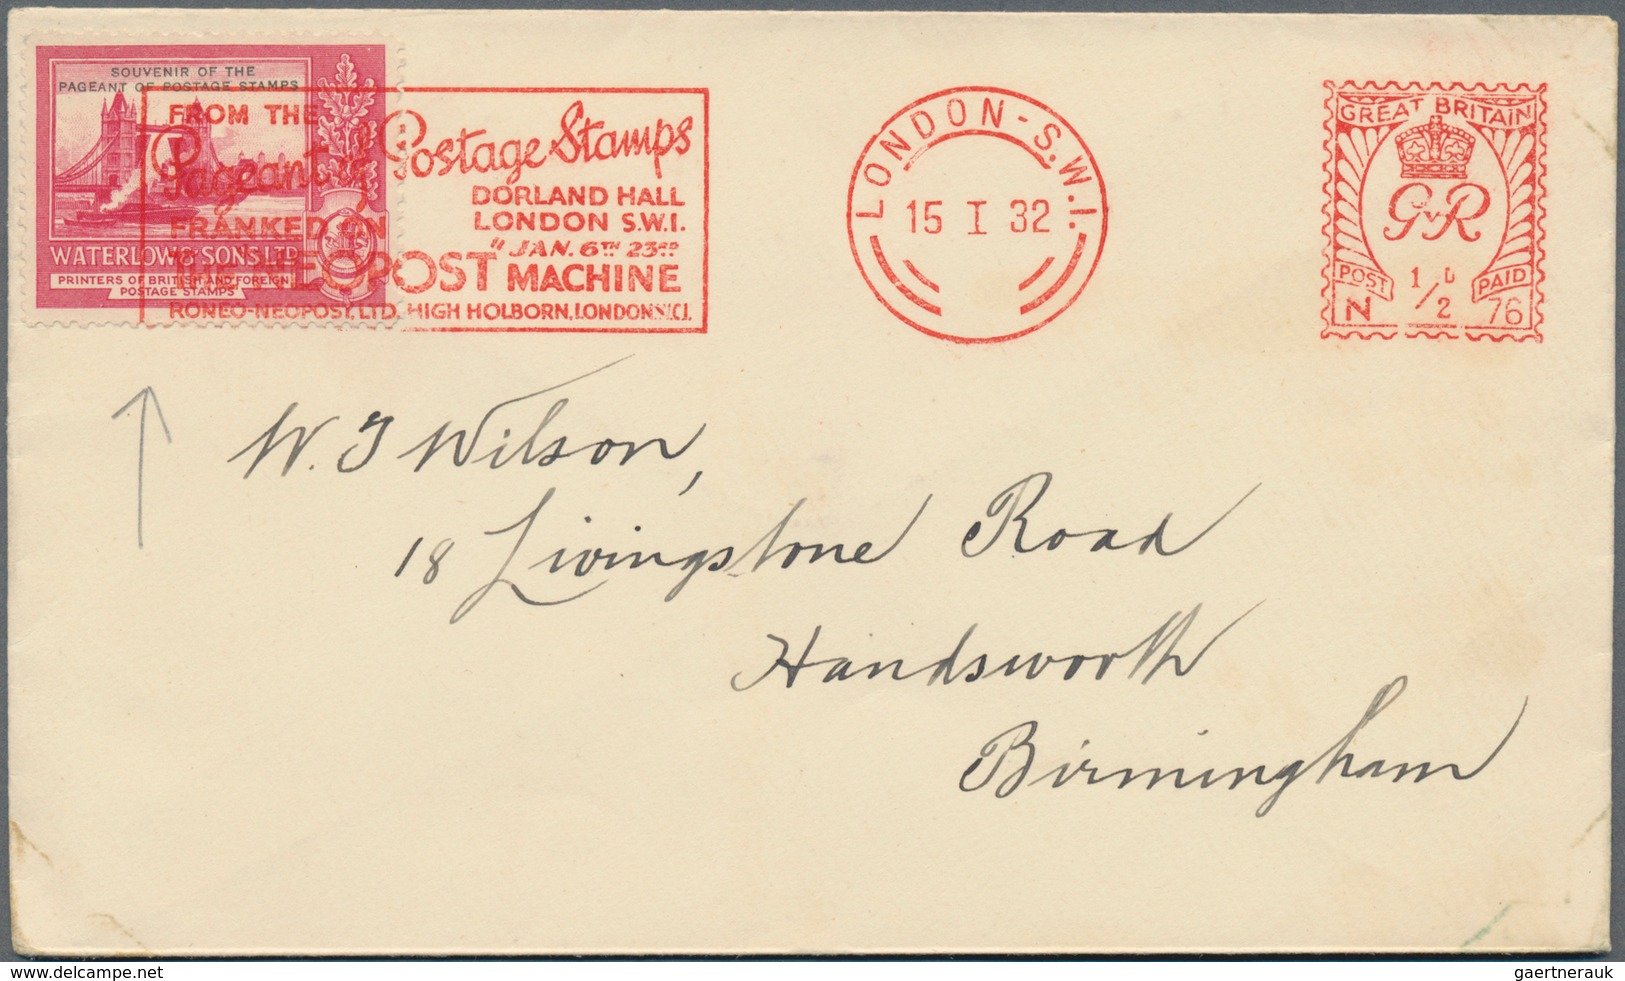 SOUVENIR OF THE
PAGEANT OF POSTAGE STAMPS
WATERLOW & SONS LTD
PRINTERS OF BRITISH AND FOREIGN
POSTAGE STAMPS
FROM THE
Pageant of Postage Stamps
DORLAND HALL
LONDON S.W.1.
JAN. 6TH 23RD
FRANKED ON
THE "NEOPOST" MACHINE
RONEO-NEOPOST, LTD. HIGH HOLBORN, LONDON W.C.1.
LONDON - S.W.1.
15 I 32
GREAT BRITAIN
G V R
POST PAID
1/2 D
N 76
W. J Wilson,
18 Livingstone Road
Handsworth
Birmingham
www.delcampe.net
gaertnerauk